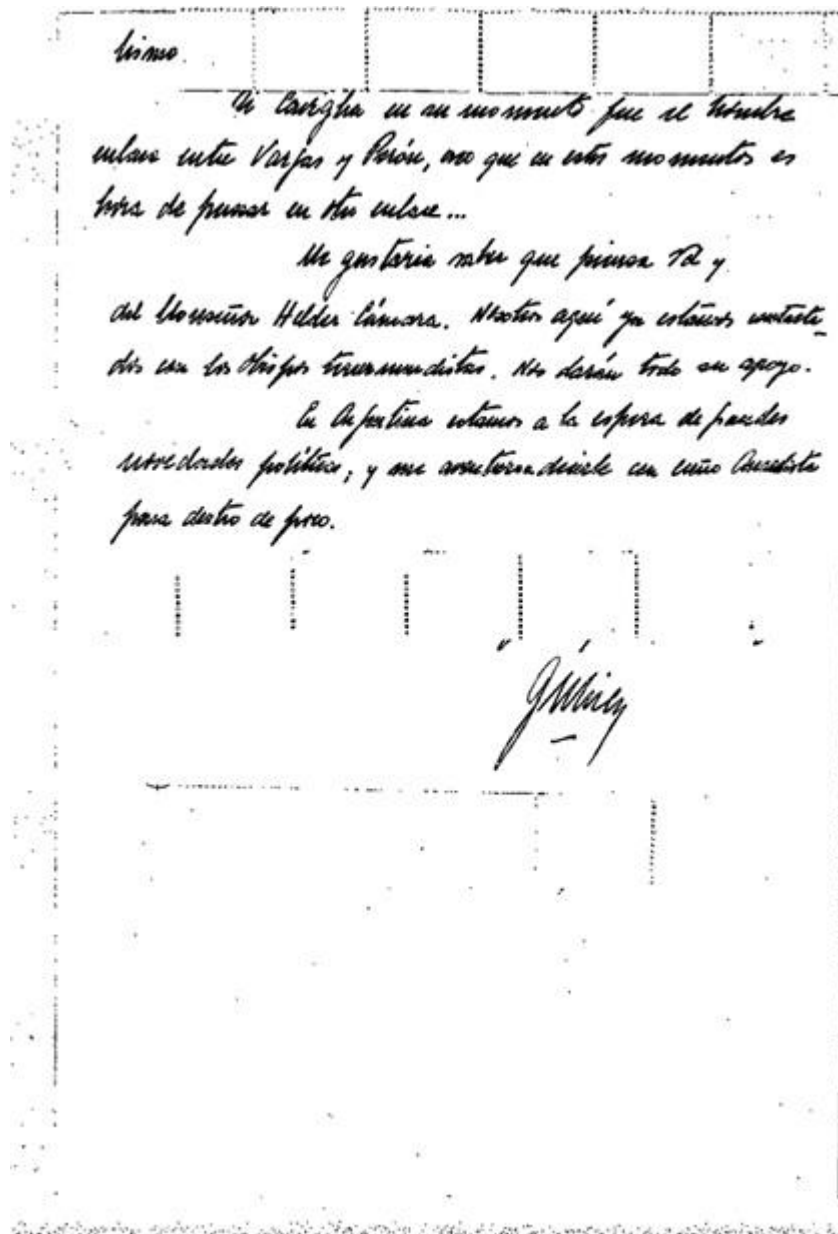 lismo.
Si Caviglia en su momento fue el hombre
enlace entre Vargas y Perón, creo que en estos momentos es
hora de pensar en otro enlace...
Me gustaria saber que piensa Vd y
del Monseñor Helder Cámara. Nosotros aquí ya estamos contacta-
dos con los Obispos tercermundistas. Nos darán todo su apoyo.
En Argentina estamos a la espera de grandes
novedades políticas, y me aventuro a decirle un
para dentro de poco.